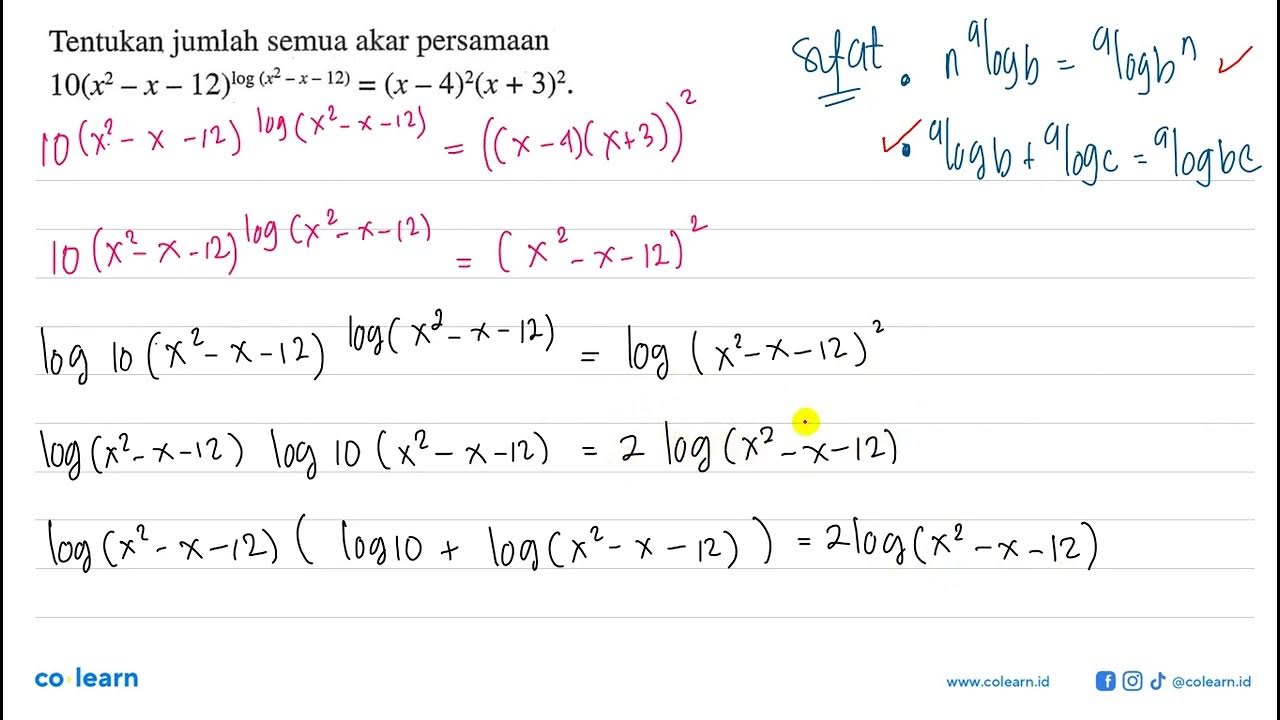 Tentukan jumlah semua akar persamaan
10(x² – x – 12)^log (x² – x – 12) = (x – 4)²(x + 3)².
Sifat • n ᵃlog b = ᵃlog bⁿ ✓
✓• ᵃlog b + ᵃlog c = ᵃlog bc
10 (x² – x – 12)^log (x² – x – 12) = ((x – 4)(x + 3))²
10 (x² – x – 12)^log (x² – x – 12) = (x² – x – 12)²
log 10 (x² – x – 12)^log (x² – x – 12) = log (x² – x – 12)²
log (x² – x – 12) log 10 (x² – x – 12) = 2 log (x² – x – 12)
log (x² – x – 12) ( log 10 + log (x² – x – 12) ) = 2 log (x² – x – 12)
co learn
www.colearn.id
@colearn.id